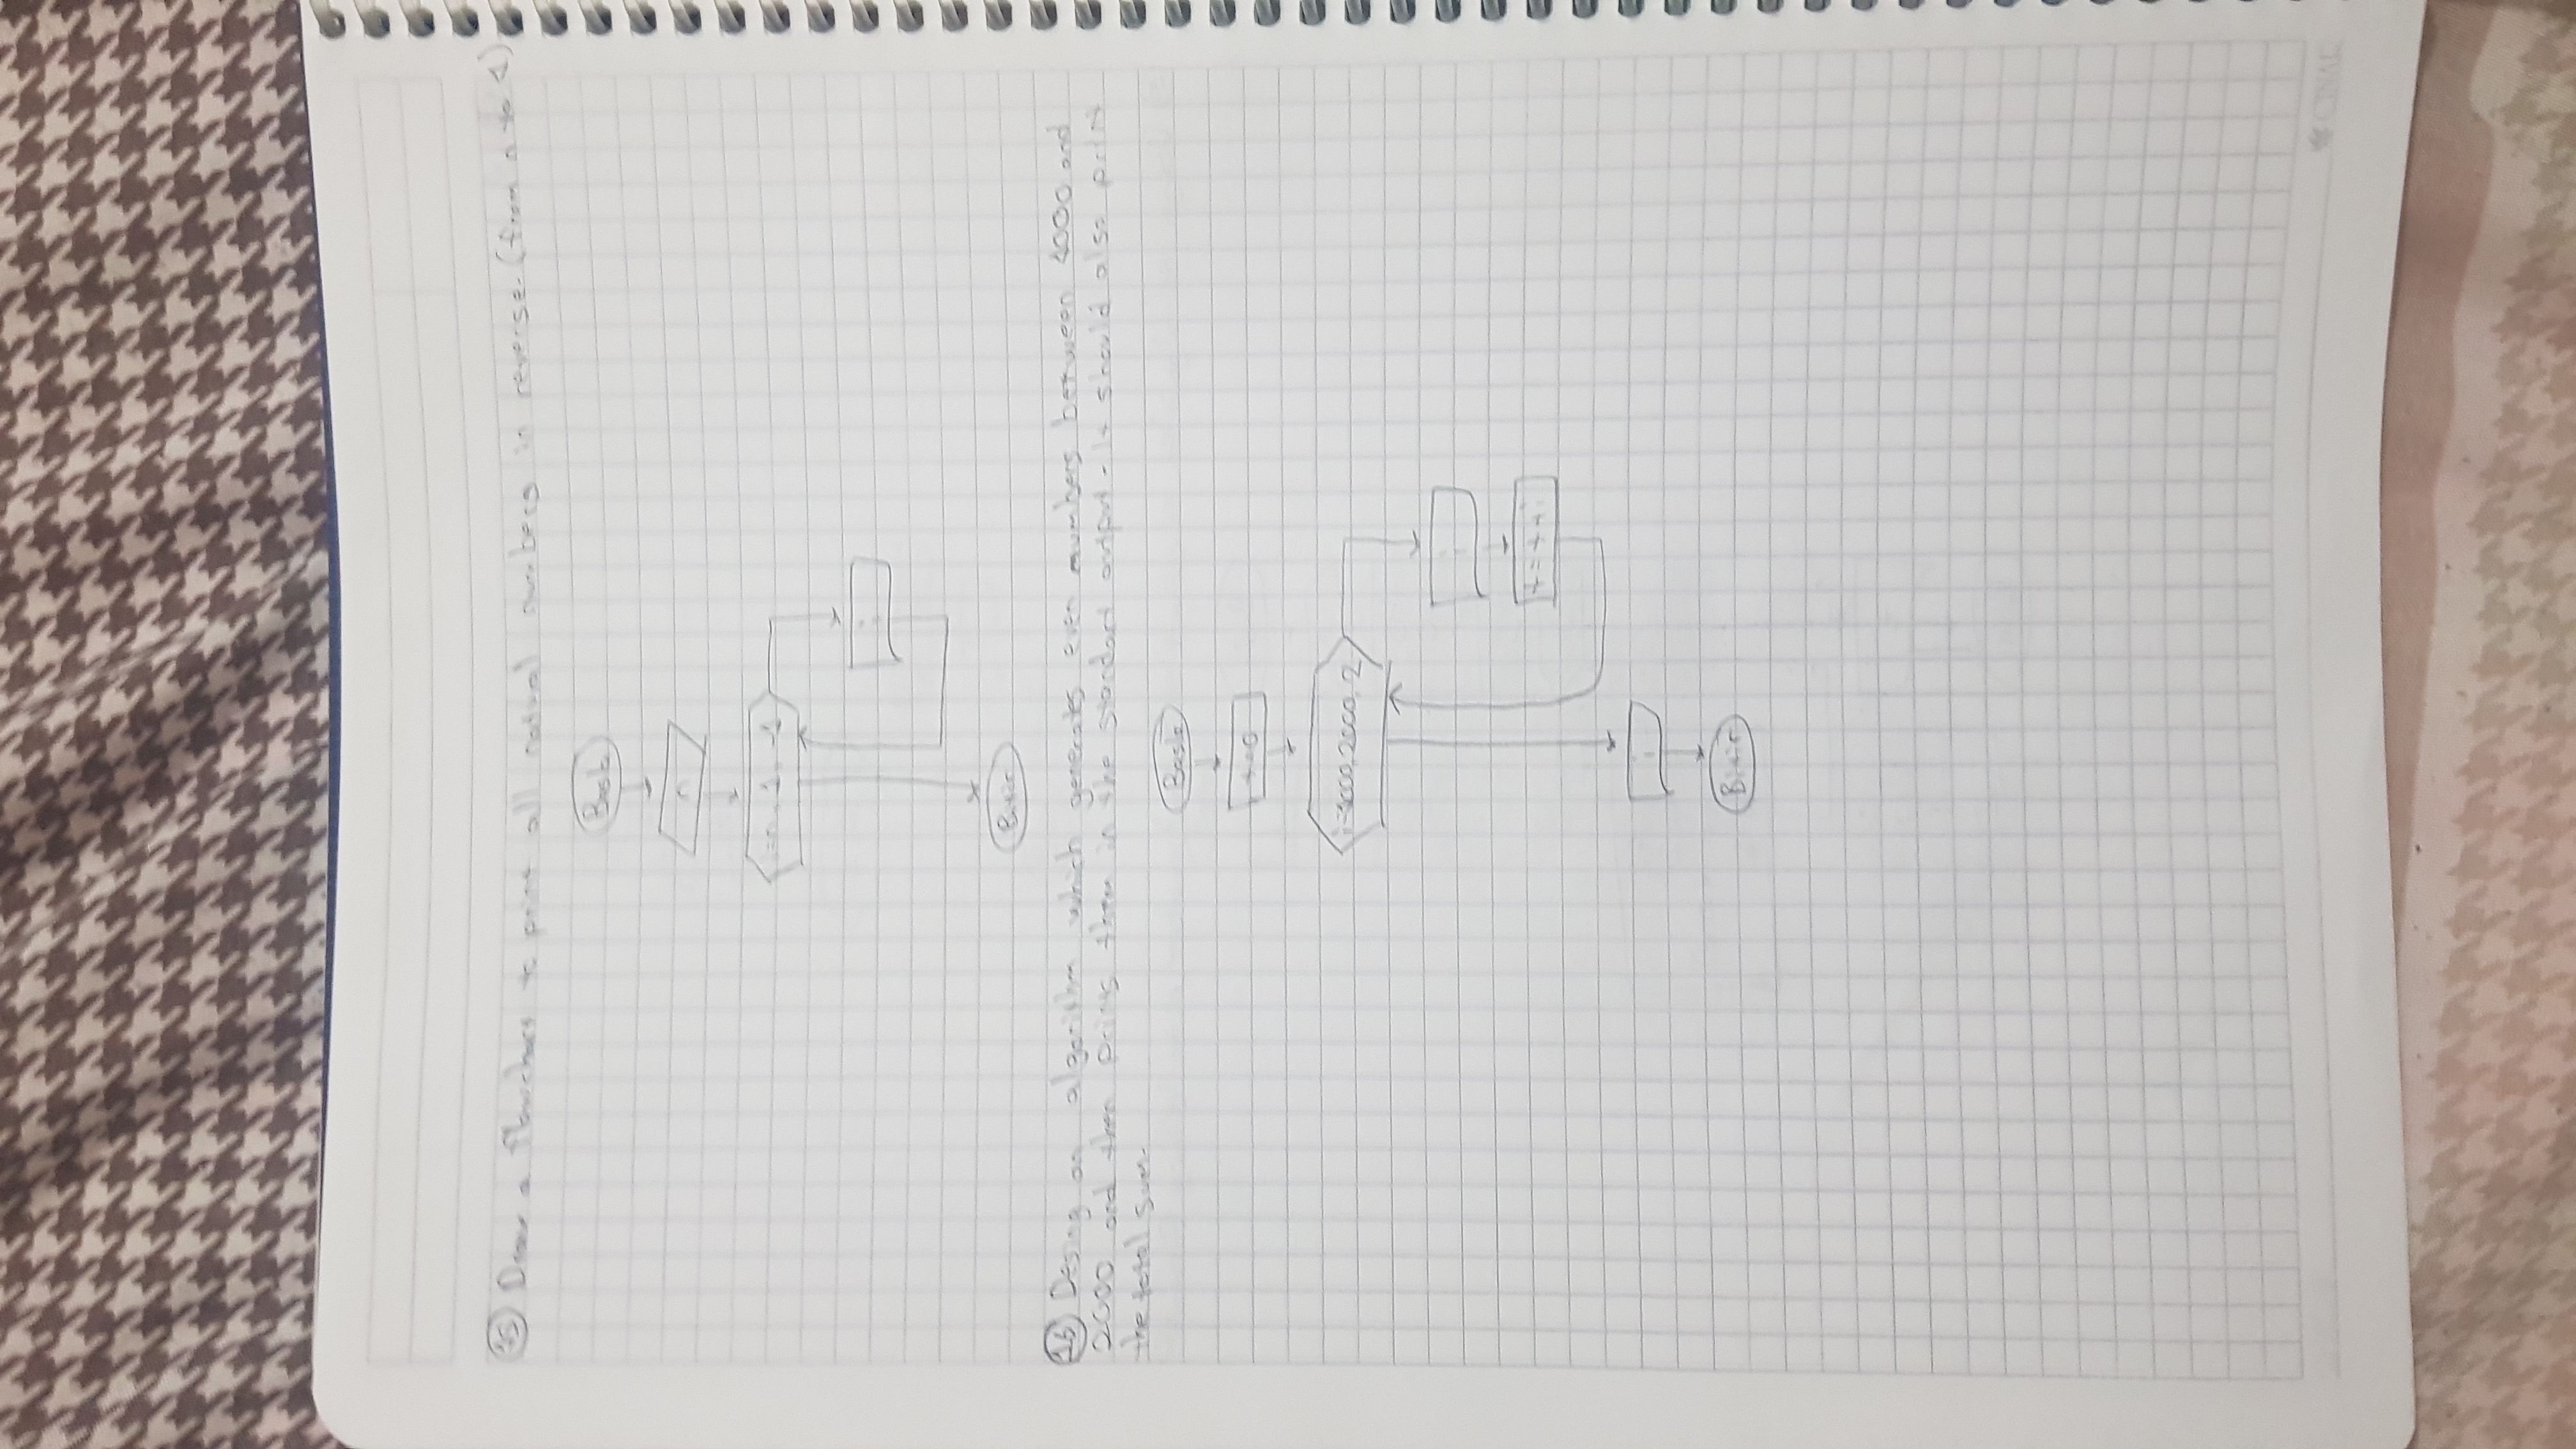 15 Draw a flowchart to print all natural numbers in reverse. (from n to 1)
Basla
n
i=n, 1, -1
i
Bitir
16 Desing an algorithm which generates even numbers between 1000 and
2000 and then prints them in the standart output. It should also print
the total sum.
Basla
t=0
i=1000, 2000, 2
i
t=t+i
Bitir
ÇINAR